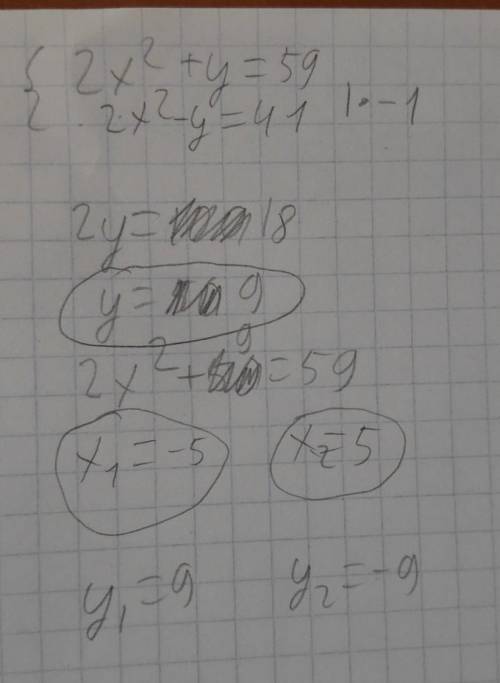 { 2x² + y = 59
2x² - y = 41 | · -1
2y = 18
y = 9
2x² + 9 = 59
x₁ = -5 x₂ = 5
y₁ = 9 y₂ = -9